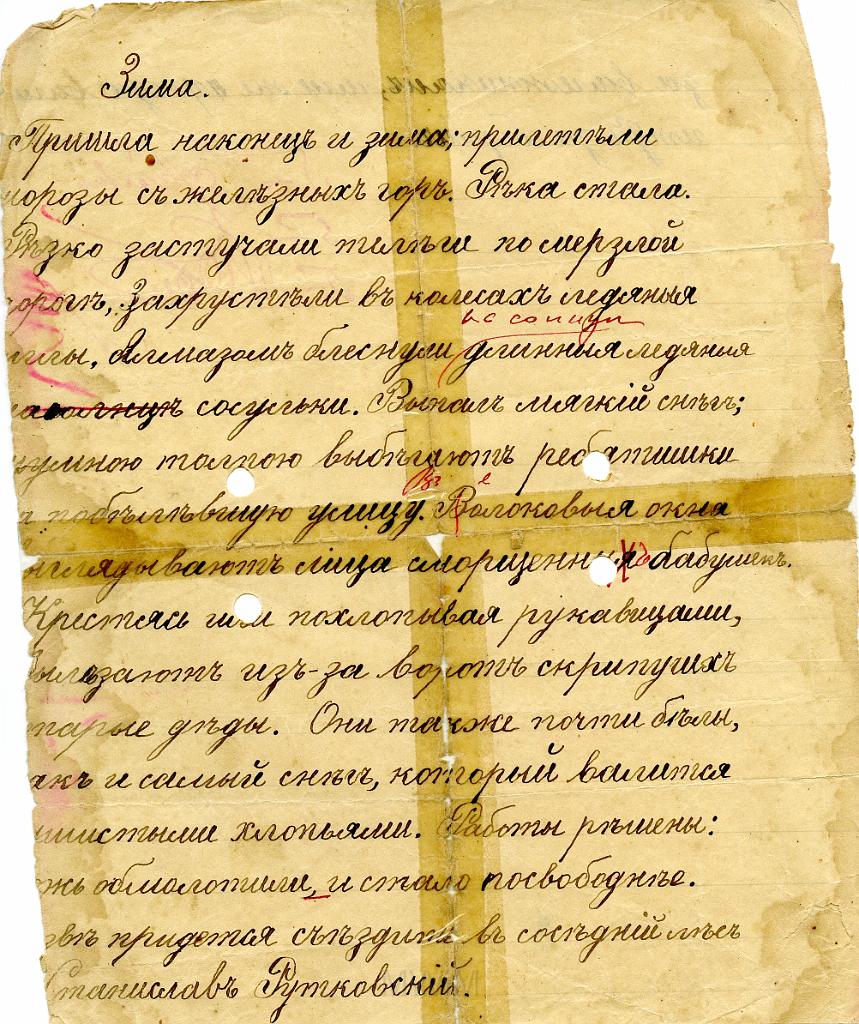 Зима.
Пришла наконецъ и зима; прилетѣли
морозы съ желѣзныхъ горъ. Рѣка стала.
Рѣзко застучали телѣги по мерзлой
дорогѣ, Захрустѣли въ колесахъ ледяныя
на солнцѣ
иглы, Алмазомъ блеснули длинныя ледяныя
на солнцѣ сосульки. Выпалъ мягкій снѣгъ;
шумною толпою выбѣгаютъ ребятишки
Въ е
на побѣлѣвшую улицу. Волоковыя окна
выглядываютъ лица сморщенныя бабушекъ.
Крестясь или похлопывая рукавицами,
вылѣзаютъ изъ-за воротъ скрипучихъ
старые дѣды. Они также почти бѣлы,
какъ и самый снѣгъ, который валится
пушистыми хлопьями. Работы рѣшены:
рожь обмолотили, и стало посвободнѣе.
развѣ придется съѣздить въ сосѣдній лѣсъ
Станиславъ Рутковскій.